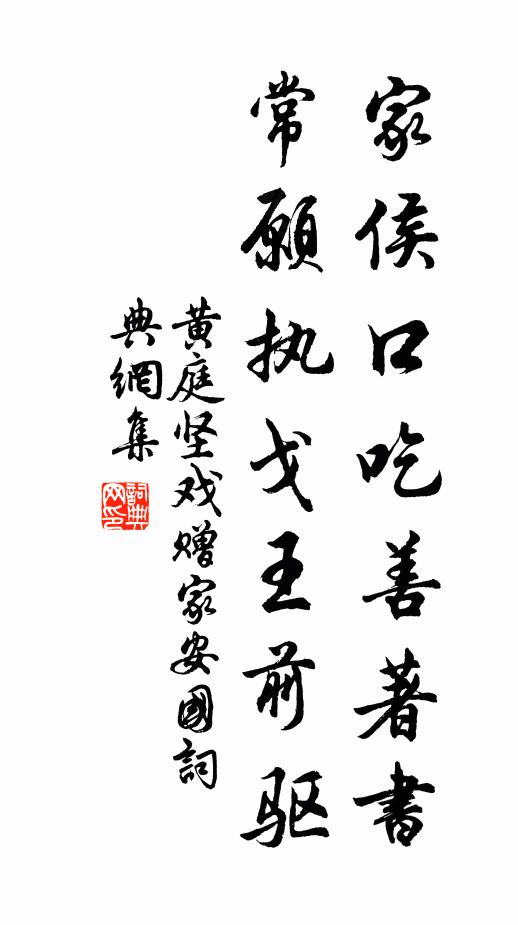 家侯口吃善著書
常願执戈王前驱
黄庭坚戏赠家安國詞
典網集
詞典网印